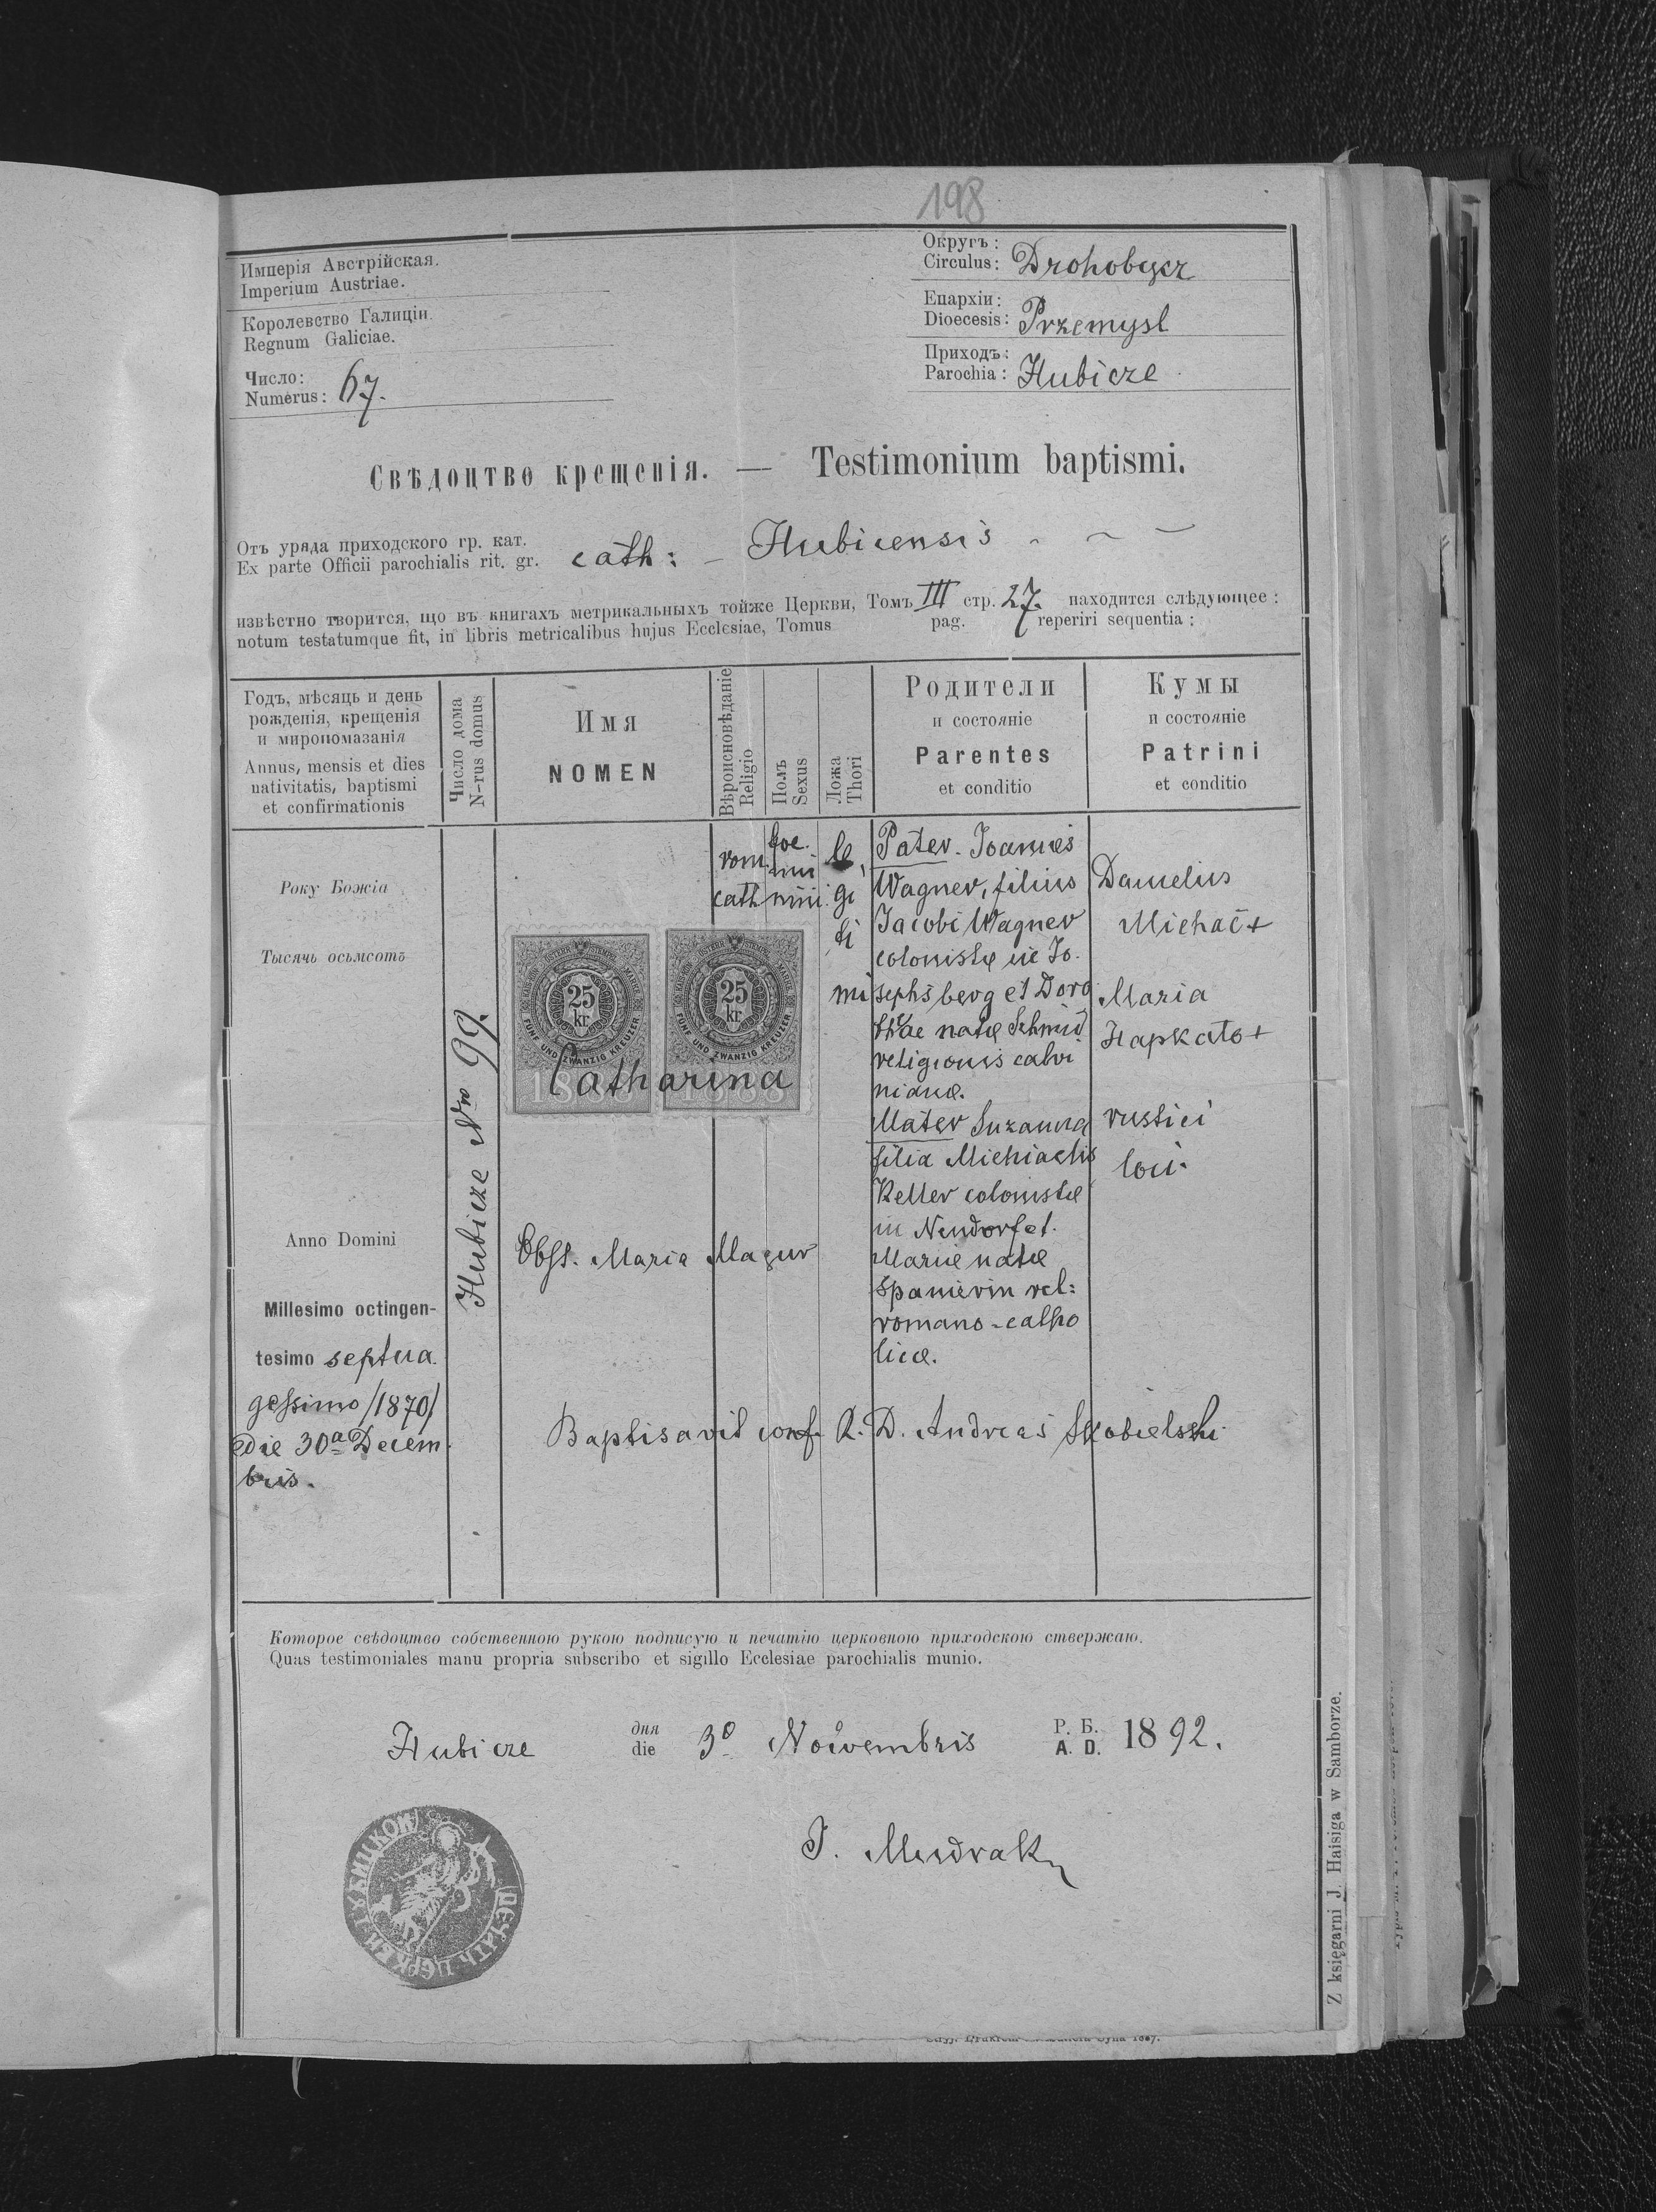 198
Имперія Австрійская.
Imperium Austriae.
Королевство Галиціи.
Regnum Galiciae.
Число:
Numerus: 67.
Округъ:
Circulus: Drohobycz
Епархіи:
Dioecesis: Przemysl
Приходъ:
Parochia: Hubicze
Свѣдоцтво крещенія. — Testimonium baptismi.
Отъ уряда приходского гр. кат.
Ex parte Officii parochialis rit. gr. cath: – Hubicensis
извѣстно творится, що въ книгахъ метрикальныхъ тойже Церкви, Томъ III стр. 27. находится слѣдующее:
notum testatumque fit, in libris metricalibus hujus Ecclesiae, Tomus pag. reperiri sequentia:
Годъ, мѣсяць и день
рожденія, крещенія
и миропомазанія
Annus, mensis et dies
nativitatis, baptismi
et confirmationis
Число дома
N-rus domus
Имя
NOMEN
Вѣроисновѣданіе
Religio
Полъ
Sexus
Ложа
Thori
Родители
и состояніе
Parentes
et conditio
Кумы
и состояніе
Patrini
et conditio
Року Божія
Тысячь осьмсотъ
Anno Domini
Millesimo octingen-
tesimo septua
gessimo /1870/
die 30ª Decem
bris.
Hubicze Nro 99.
25
kr.
FÜNF UND ZWANZIG KREUZER
1888
25
kr.
FÜNF UND ZWANZIG KREUZER
1888
Catharina
Obst. Maria Mazur
rom.
cath
foe.
mi
nini.
le
gi
ti
mi
Pater. Joannes
Wagner, filius
Jacobi Wagner
colonistæ in Jo.
sephsberg et Doro
theae natæ Schmid
religionis calvi
nianæ.
Mater Suzanna
filia Michaelis
Keller colonistæ
in Neudorf et.
Mariæ natæ
Spanierin rel:
romano-catho
licæ.
Danielius
Michać +
Maria
Hapkato +
rustici
loci.
Baptisavit conf. R. D. Andreas Skobielski
Которое свѣдоцтво собственною рукою подписую и печатію церковною приходскою стверждаю.
Quas testimoniales manu propria subscribo et sigillo Ecclesiae parochialis munio.
Hubicze дня die 30 Novembris Р. Б. A. D. 1892.
J. Mudrak
ПЕЧАТЬ ЦЕРКВИ ГУБИЦКОИ
Z księgarni J. Haisiga w Samborze.